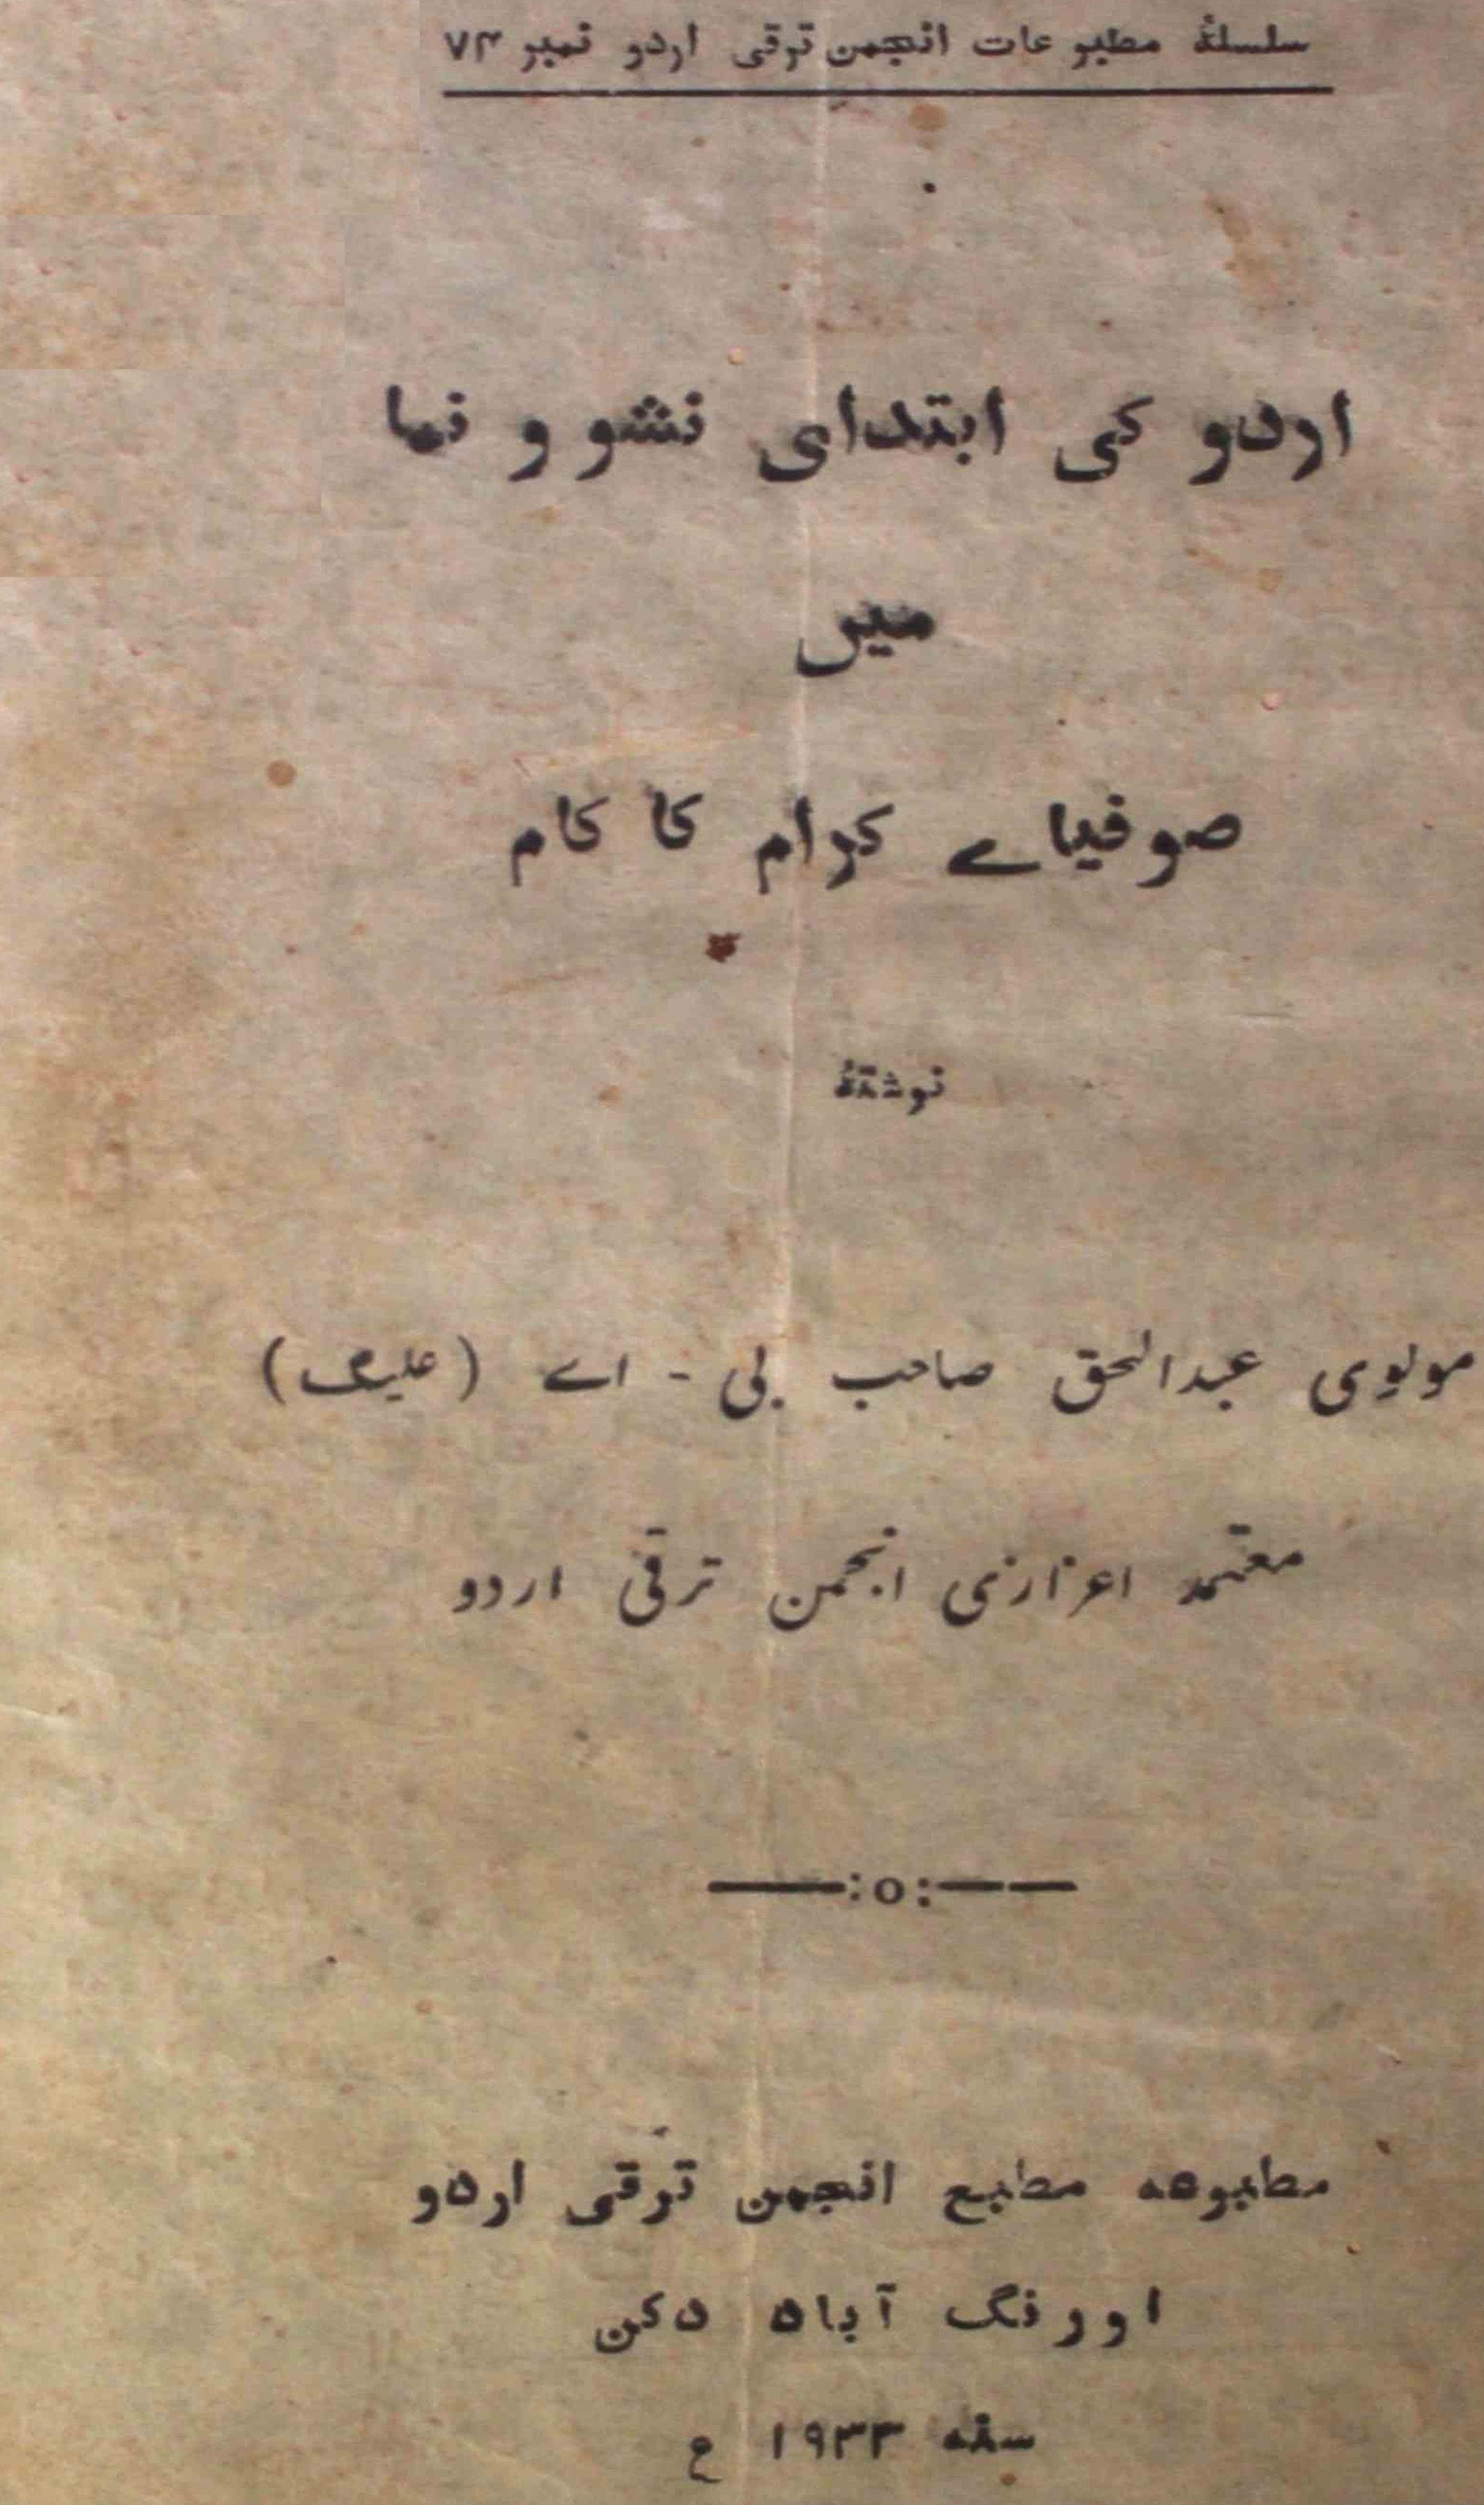 سلسلۂ مطبوعات انجمن ترقی اردو نمبر ۷۴
اردو کی ابتدای نشو و نما
میں
صوفیاے کرام کا کام
نوشتۂ
مولوی عبدالحق صاحب بی - اے (علیگ)
معتمد اعزازی انجمن ترقی اردو
——:o:——
مطبوعہ مطبع انجمن ترقی اردو
اورنگ آباد دکن
سنہ ۱۹۳۳ ع